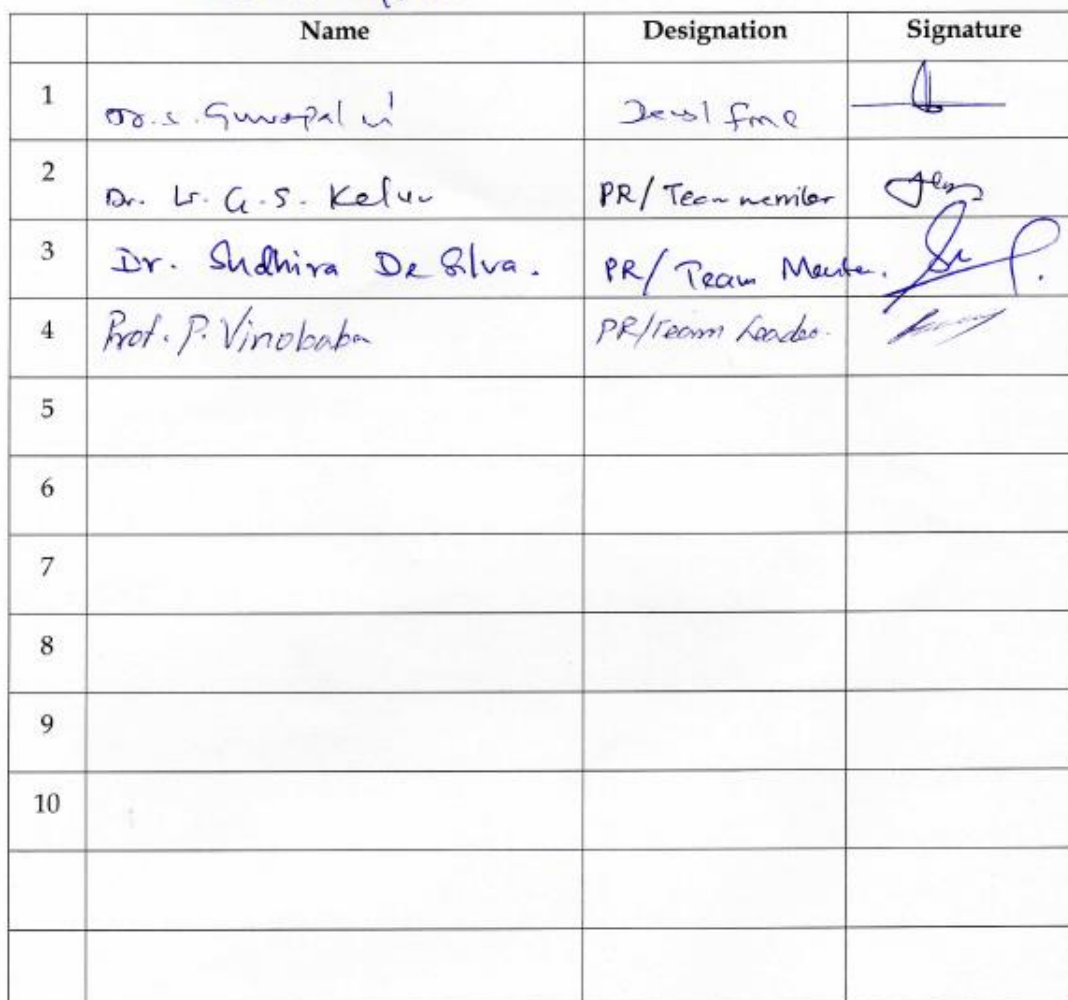 Name Designation Signature
1
2 Dr. G. S. PR/ Team member
3 Dr. Sudhira De Silva. PR/ Team Member.
4 Prof. P. Vinobaba PR/Team Leader.
5
6
7
8
9
10